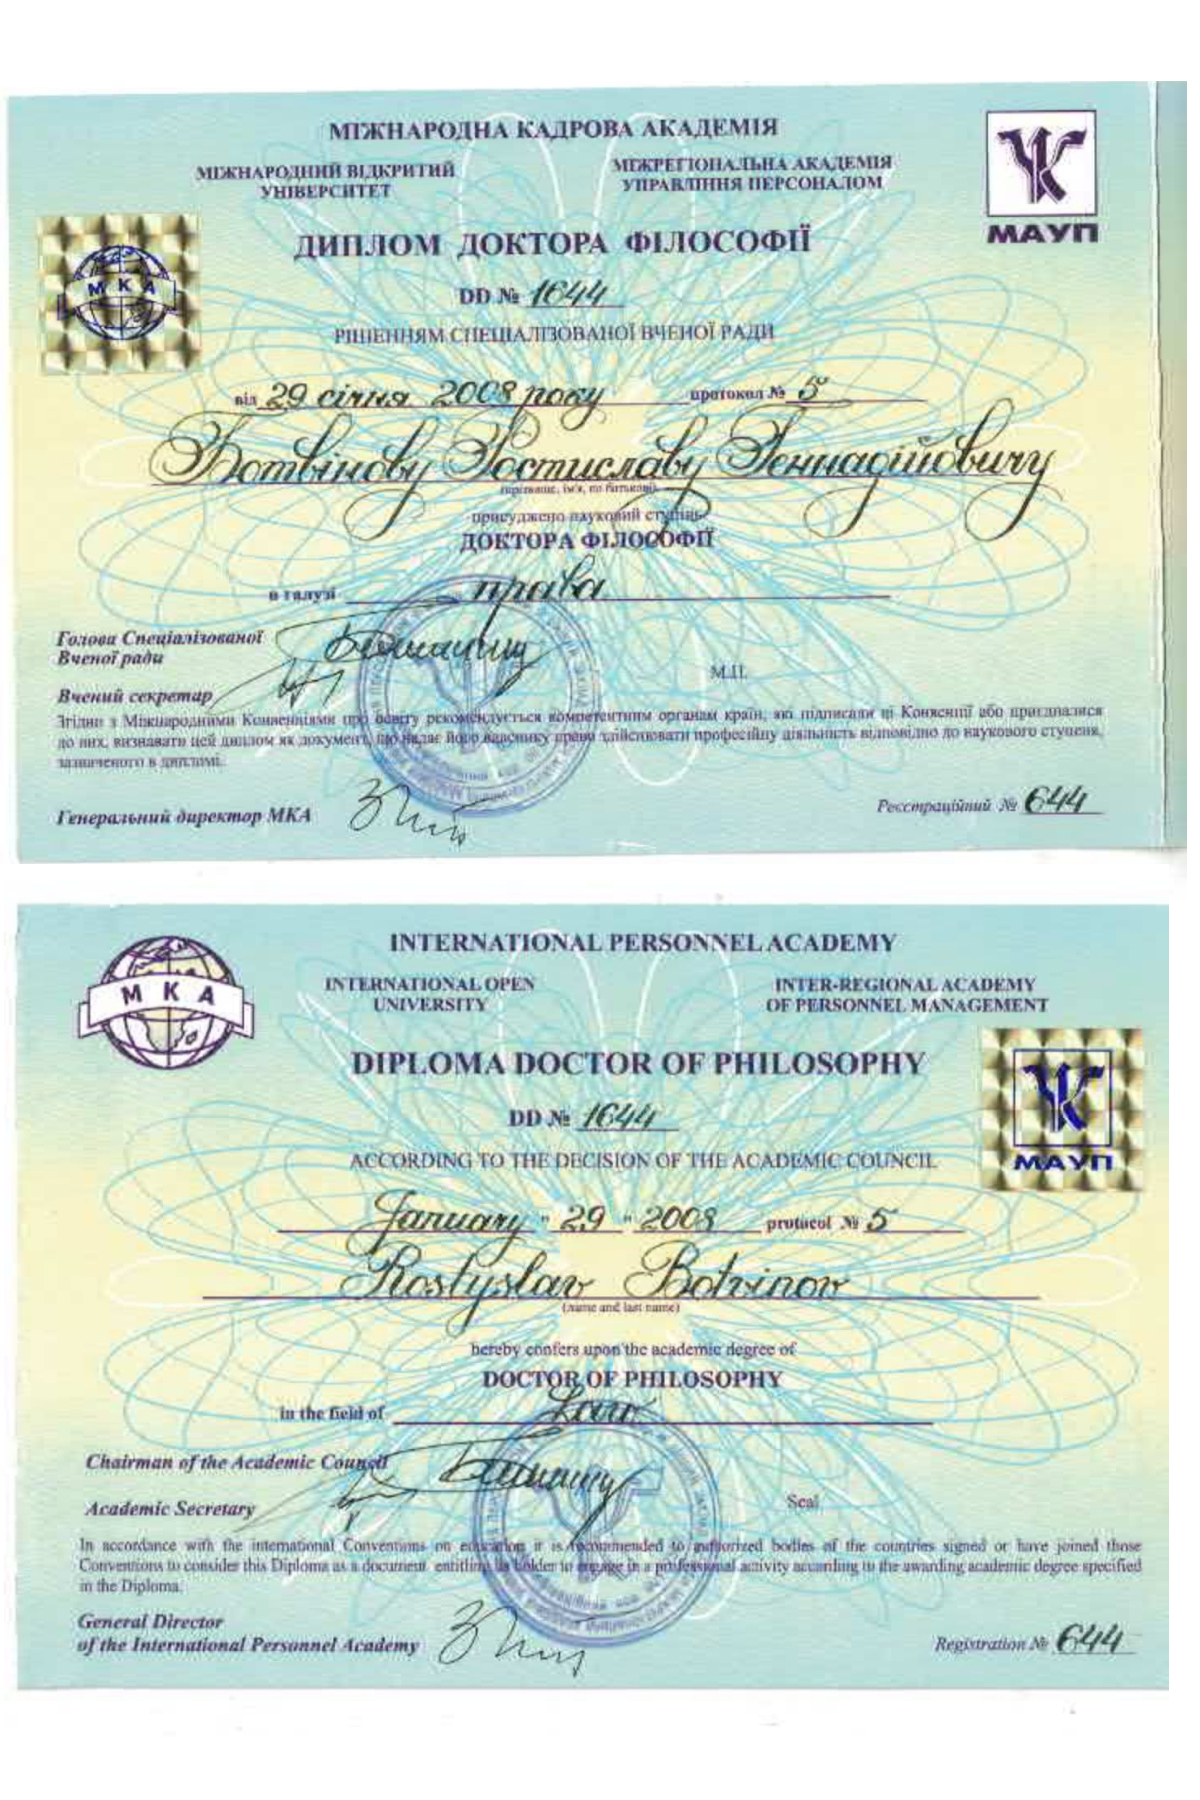 МІЖНАРОДНА КАДРОВА АКАДЕМІЯ
МІЖНАРОДНИЙ ВІДКРИТИЙ
УНІВЕРСИТЕТ
МІЖРЕГІОНАЛЬНА АКАДЕМІЯ
УПРАВЛІННЯ ПЕРСОНАЛОМ
МАУП
МКА
ДИПЛОМ ДОКТОРА ФІЛОСОФІЇ
DD № 1644
РІШЕННЯМ СПЕЦІАЛІЗОВАНОЇ ВЧЕНОЇ РАДИ
від 29 січня 2008 року протокол № 5
Ботвінову Ростиславу Геннадійовичу
(прізвище, ім'я, по батькові)
присуджено науковий ступінь
ДОКТОРА ФІЛОСОФІЇ
в галузі права
Голова Спеціалізованої
Вченої ради
М.П.
Вчений секретар
Згідно з Міжнародними Конвенціями про освіту рекомендується компетентним органам країн, які підписали ці Конвенції або приєдналися
до них, визнавати цей диплом як документ, що надає його власнику право здійснювати професійну діяльність відповідно до наукового ступеня,
зазначеного в дипломі.
Генеральний директор МКА
Реєстраційний № 644
МКА
INTERNATIONAL PERSONNEL ACADEMY
INTERNATIONAL OPEN
UNIVERSITY
INTER-REGIONAL ACADEMY
OF PERSONNEL MANAGEMENT
МАУП
DIPLOMA DOCTOR OF PHILOSOPHY
DD № 1644
ACCORDING TO THE DECISION OF THE ACADEMIC COUNCIL
January "29" 2008 protocol № 5
Rostyslav Botvinov
(name and last name)
hereby confers upon the academic degree of
DOCTOR OF PHILOSOPHY
in the field of Law
Chairman of the Academic Council
Academic Secretary
Seal
In accordance with the international Conventions on education it is recommended to authorized bodies of the countries signed or have joined those
Conventions to consider this Diploma as a document entitling its holder to engage in a professional activity according to the awarding academic degree specified
in the Diploma.
General Director
of the International Personnel Academy
Registration № 644